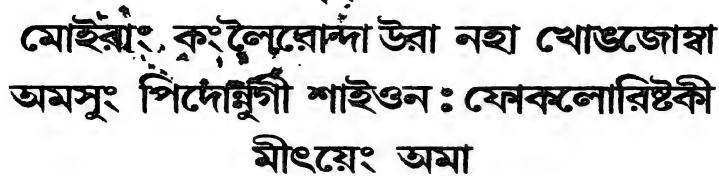 মোইরাং কংলৈরোন্দা উরা নহা খোঙজোম্বা
অমসুং পিদোন্নুগী শাইওন : ফোকলোরিষ্টকী
মীৎয়েং অমা